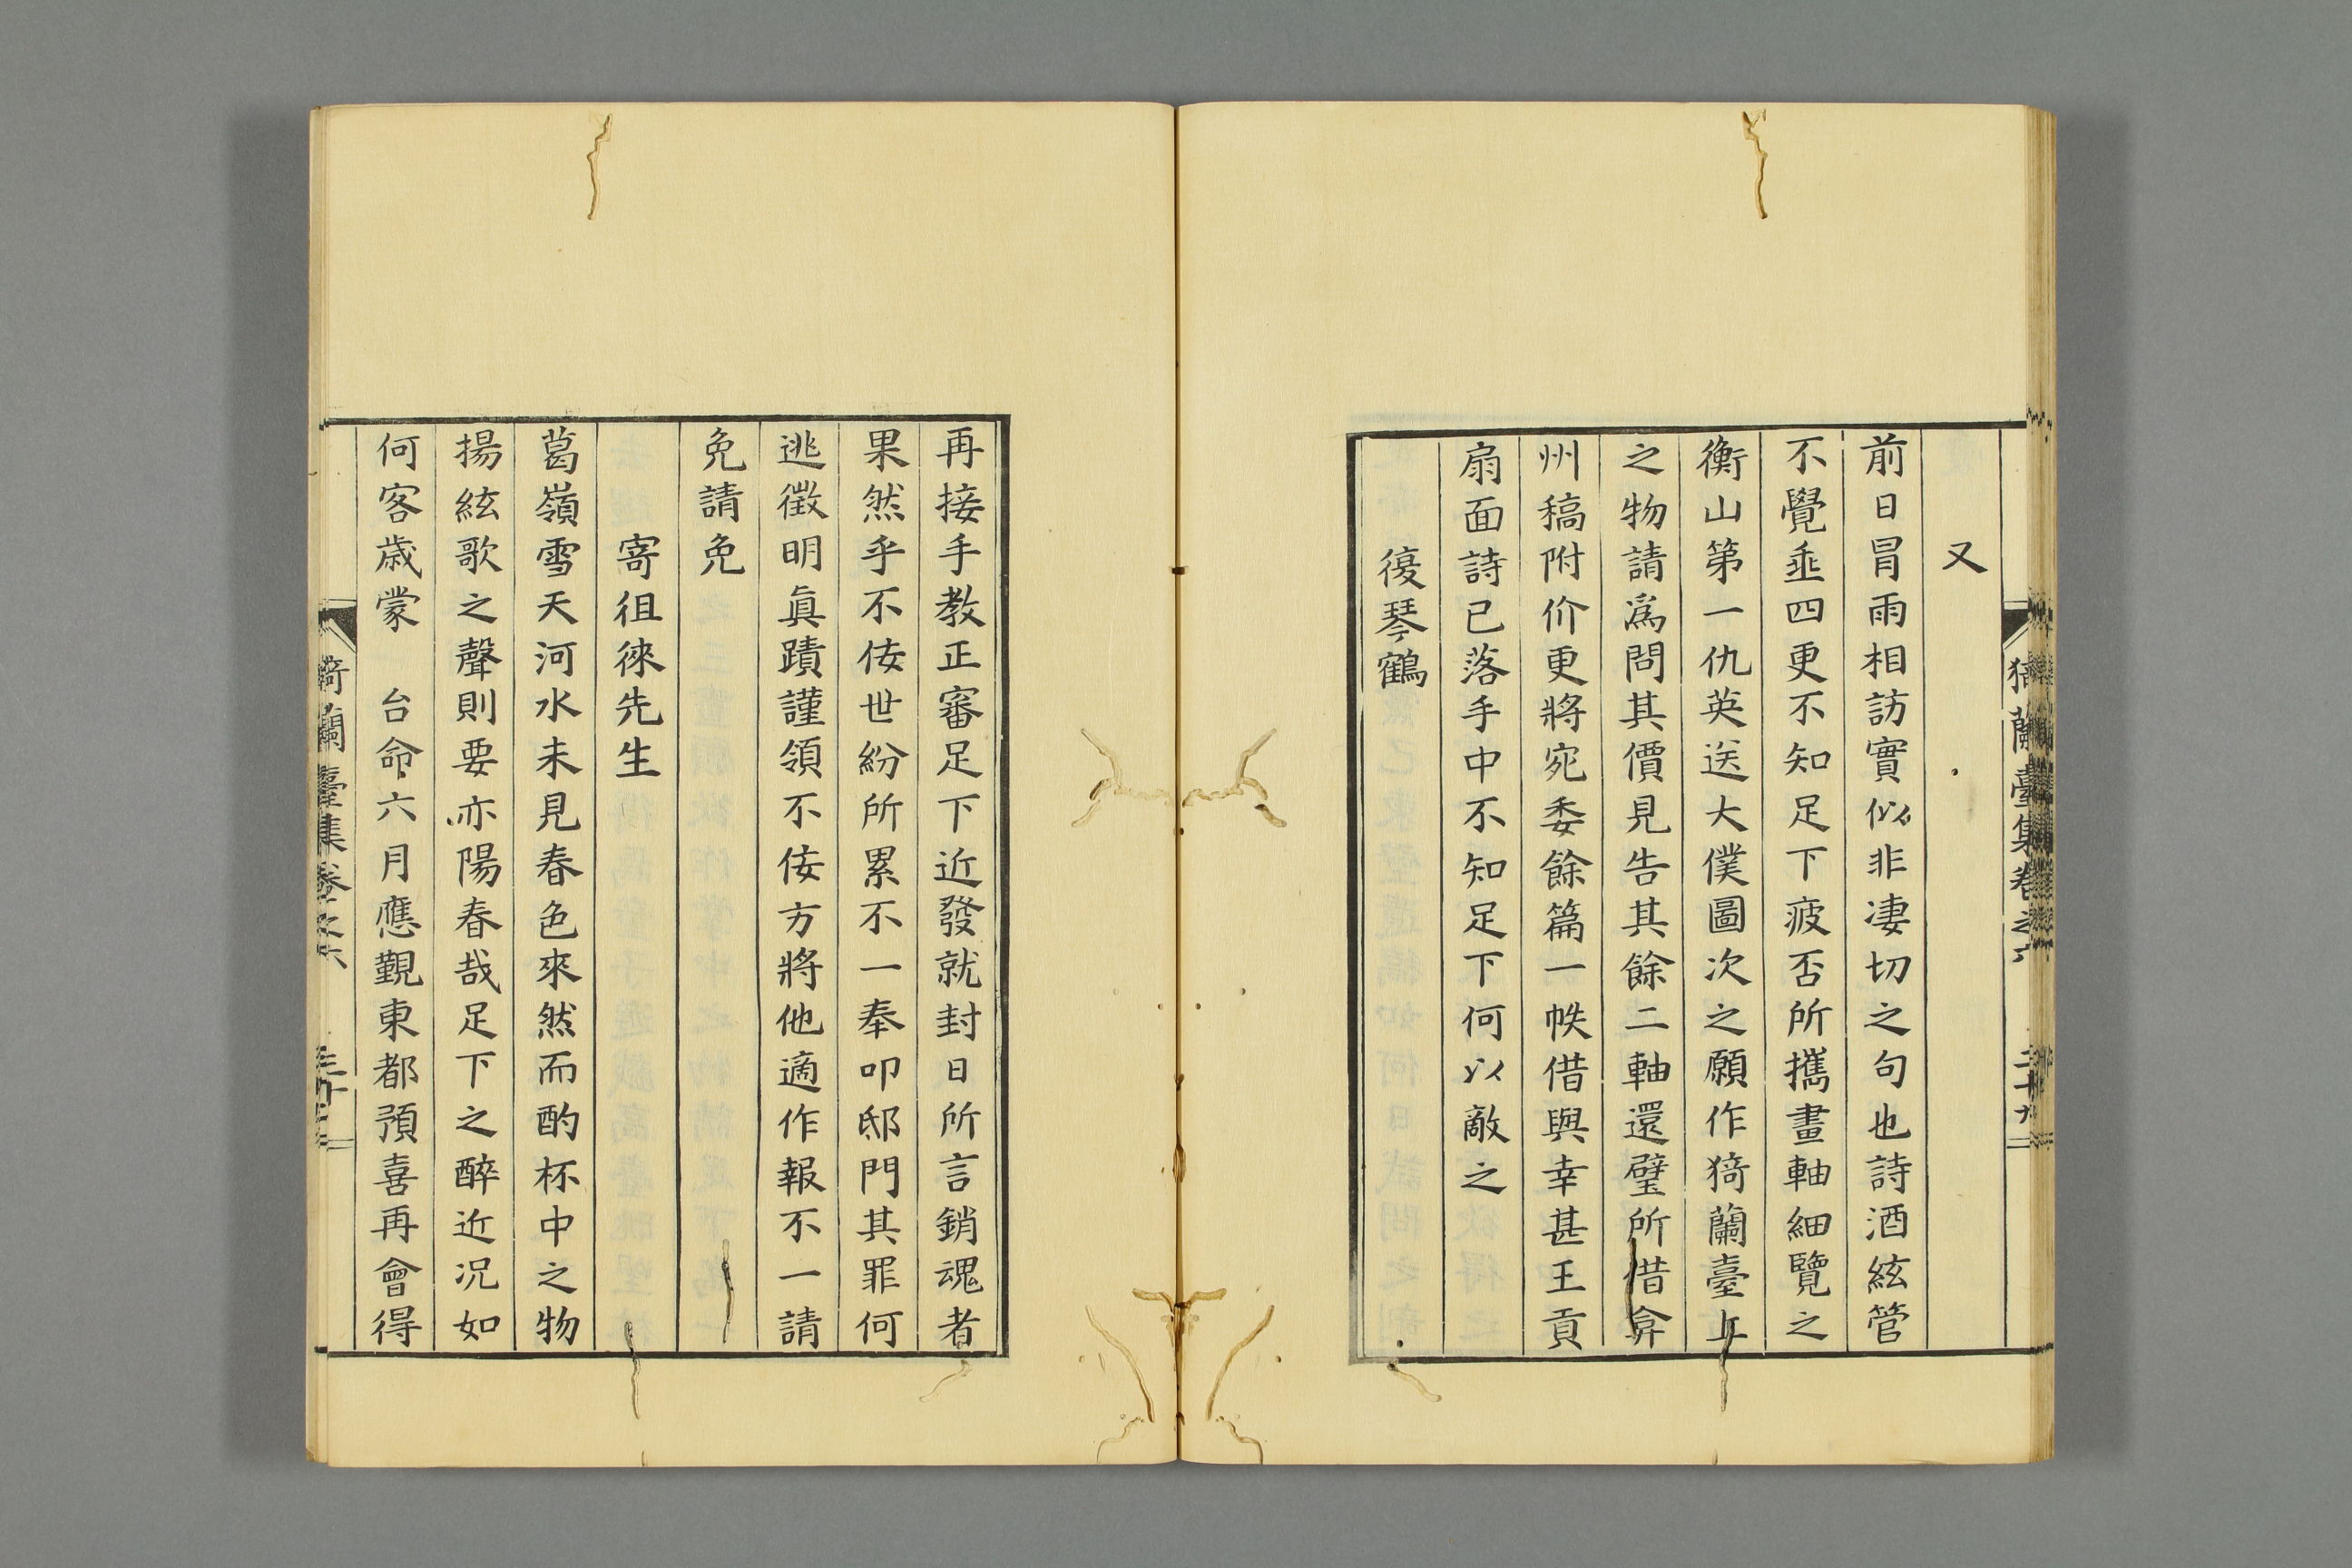 又
前日冒雨相訪實似非凄切之句也詩酒絃管
不覺亟四更不知足下疲否所攜畫軸細覽之
衡山第一仇英送大僕圖次之願作猗蘭臺上
之物請爲問其價見告其餘二軸還璧所借弇
州稿附价更將宛委餘篇一帙借與幸甚王貢
扇面詩已落手中不知足下何以敵之
復琴鶴
再接手教正審足下近發就封日所言銷魂者
果然乎不佞世紛所累不一奉叩邸門其罪何
逃徵明眞蹟謹領不佞方將他適作報不一請
免請免
寄徂徠先生
葛嶺雪天河水未見春色來然而酌杯中之物
揚絃歌之聲則要亦陽春哉足下之醉近况如
何客歳蒙 台命六月應觀東都預喜再會得
猗蘭臺集卷之六